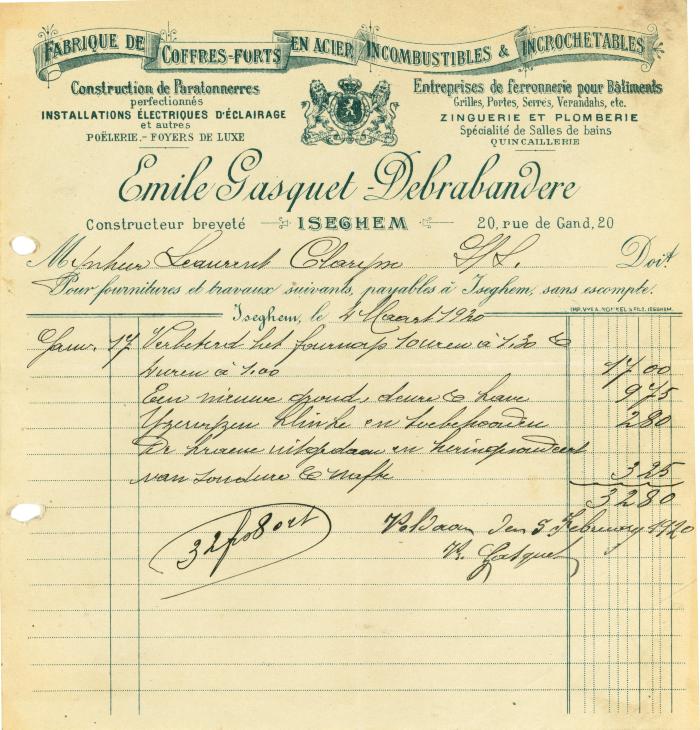 FABRIQUE DE COFFRES-FORTS EN ACIER INCOMBUSTIBLES & INCROCHETABLES
Construction de Paratonnerres
perfectionnés
INSTALLATIONS ÉLECTRIQUES D'ÉCLAIRAGE
et autres
POËLERIE.- FOYERS DE LUXE
Entreprises de ferronnerie pour Bâtiments
Grilles, Portes, Serres, Verandahs, etc.
ZINGUERIE ET PLOMBERIE
Spécialité de Salles de bains
QUINCAILLERIE
Emile Gasquet-Debrabandere
Constructeur breveté ISEGHEM 20, rue de Gand, 20
Mynheer Laurent Doit.
Pour fournitures et travaux suivants, payables à Iseghem, sans escompte.
Iseghem, le 4 Maart 1920
Janv. 17 Verbeterd het fournays 10 uren à 1.30 &
uren à 1.00 17 00
Een nieuwe grond, deure & 9 75
Yzer klinke en toebehoorden 2 80
De kraene uitgedaan en
van soudure & nafte 3 25
32 80
32 fr 80 ct
Voldaan den 5 February 1920
Gasquet